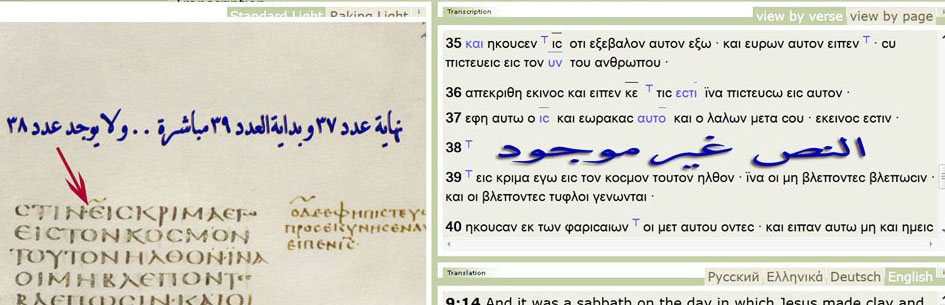 Standard Light Raking Light
نهاية عدد ٣٧ و بداية العدد ٣٩ مباشرة . . ولا يوجد عدد ٣٨
ϹΤΙΝΕΙϹΚΡΙΜΑΕΓ
ΕΙϹΤΟΝΚΟϹΜΟΝ
ΤΟΥΤΟΝΗΛΘΟΝΙΝΑ
ΟΙΜΗΒΛΕΠΟΝΤ
ΒΛΕΠΩϹΙΝΚΑΙΟΙ
ΟΔΕΕΦΗΠΙϹΤΕΥ
ΠΡΟϹΕΚΥΝΗϹΕΝΑ
ΕΙΠΕΝΙϹ
Transcription
view by verse view by page
35 και ηκουϲεν ⸆ ιϲ οτι εξεβαλον αυτον εξω · και ευρων αυτον ειπεν ⸆ · ϲυ
πιϲτευειϲ ειϲ τον υν του ανθρωπου ·
36 απεκριθη εκινοϲ και ειπεν κε ⸆ τιϲ εϲτι ϊνα πιϲτευϲω ειϲ αυτον ·
37 εφη αυτω ο ιϲ και εωρακαϲ αυτο και ο λαλων μετα ϲου · εκεινοϲ εϲτιν ·
38 ⸆ النص غير موجود
39 ⸆ ειϲ κριμα εγω ειϲ τον κοϲμον τουτον ηλθον · ϊνα οι μη βλεποντεϲ βλεπωϲιν ·
και οι βλεποντεϲ τυφλοι γενωνται ·
40 ηκουϲαν εκ των φαριϲαιων ⸆ οι μετ αυτου οντεϲ · και ειπαν αυτω μη και ημειϲ
Translation
Русский Ελληνικά Deutsch English
9:14 And it was a sabbath on the day in which Jesus made clay and